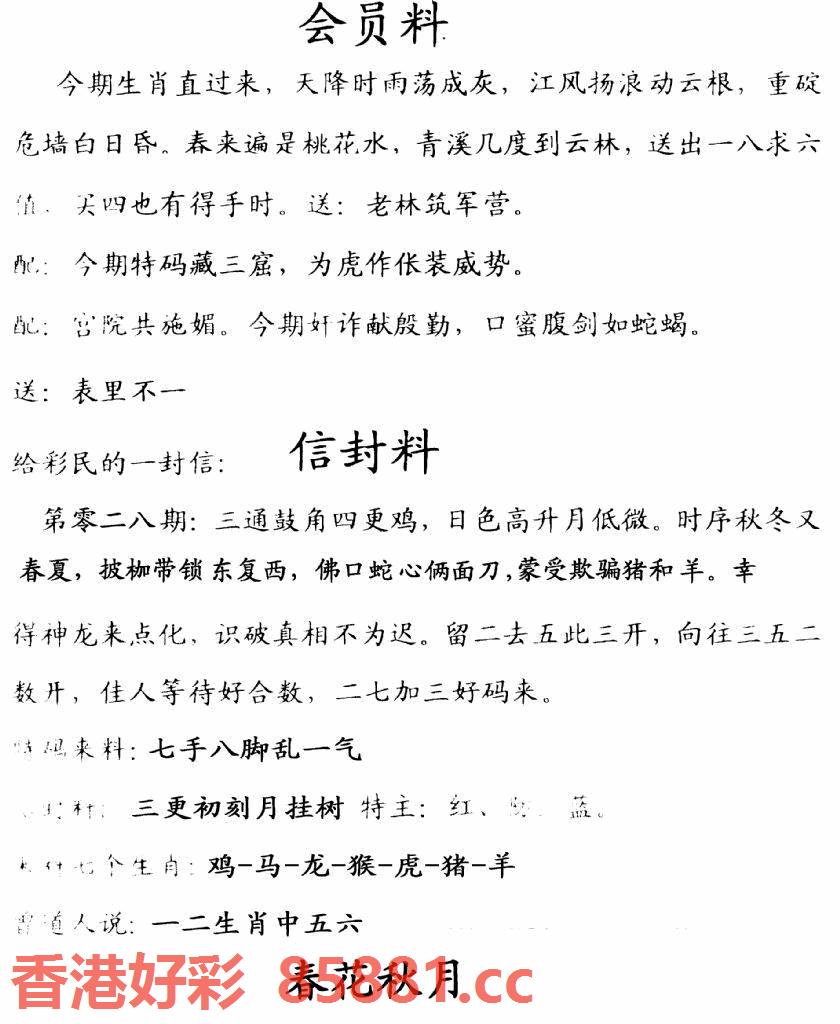 会员料
今期生肖直过来，天降时雨荡成灰，江风扬浪动云根，重碇
危墙白日昏。春来遍是桃花水，青溪几度到云林，送出一八求六
值，买四也有得手时。送：老林筑军营。
配：今期特码藏三窟，为虎作伥装威势。
配：宫院共施媚。今期奸诈献殷勤，口蜜腹剑如蛇蝎。
送：表里不一
信封料
给彩民的一封信：
第零二八期：三通鼓角四更鸡，日色高升月低微。时序秋冬又
春夏，披枷带锁东复西，佛口蛇心俩面刀,蒙受欺骗猪和羊。幸
得神龙来点化，识破真相不为迟。留二去五此三开，向往三五二
数开，佳人等待好合数，二七加三好码来。
特码来料：七手八脚乱一气
三更初刻月挂树 特主：红、蓝。
七个生肖：鸡-马-龙-猴-虎-猪-羊
曾道人说：一二生肖中五六
春花秋月
香港好彩 85881.cc